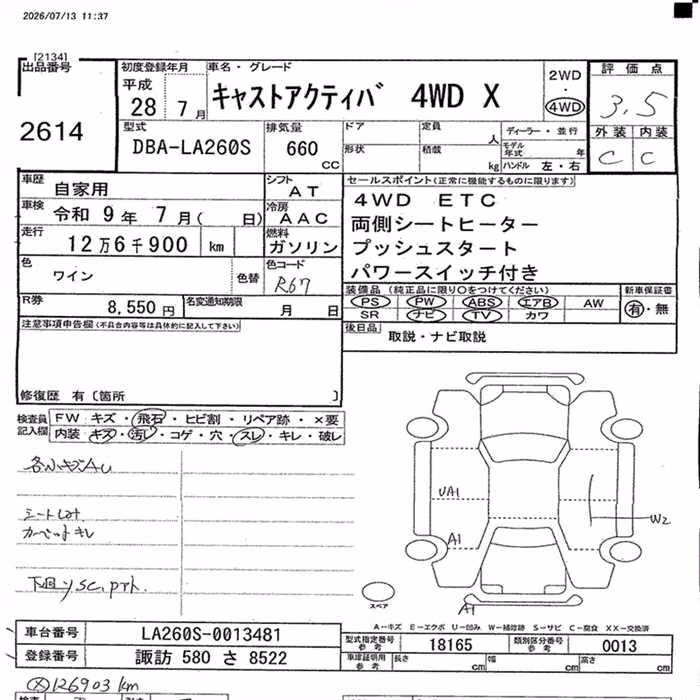 2026/07/13 11:37
[2134]
出品番号
2614
初度登録年月
平成
28 7月
車名・グレード
キャストアクティバ 4WD X
2WD
・
4WD
評価点
3.5
外装 内装
C C
型式
DBA-LA260S
排気量
660
CC
ドア
形状
定員
人
積載
kg
ディーラー・並行
モデル年式
年
ハンドル 左・右
車歴
自家用
シフト
AT
車検
令和 9年 7月( 日)
冷房
AAC
走行
12万6千900 km
燃料
ガソリン
色
ワイン
色替
色コード
R67
R券
8,550円
名変通知期限
月 日
セールスポイント(正常に機能するものに限ります)
4WD ETC
両側シートヒーター
プッシュスタート
パワースイッチ付き
装備品 (純正品に限り○をつけてください)
PS PW ABS エアB AW
SR ナビ TV カワ
新車保証書
有・無
後日品
取説・ナビ取説
注意事項申告欄(不具合内容等は具体的に記入して下さい)
修復歴 有〔箇所 〕
検査員
記入欄
FW キズ・飛石・ヒビ割・リペア跡・×要
内装 キズ・汚レ・コゲ・穴・スレ・キレ・破レ
各小キズAU
UA1
A1
W2
A1
スペア
A-キズ E-エクボ U-凹み W-補修跡 S-サビ C-腐食 XX-交換済
車台番号
LA260S-0013481
登録番号
諏訪 580 さ 8522
型式指定番号
参考
18165
類別区分番号
参考
0013
車庫証明用
参考
長さ
cm
幅
cm
高さ
cm
126903 km